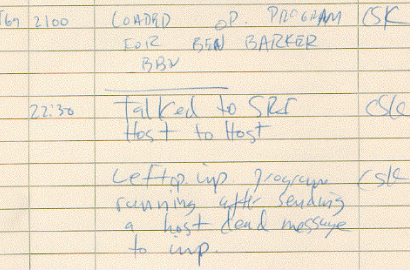 2100 LOADED OP. PROGRAM CSK
FOR BEN BARKER
BBN
22:30 Talked to SRI CSK
Host to Host
Left op. imp program CSK
running after sending
a host dead message
to imp.